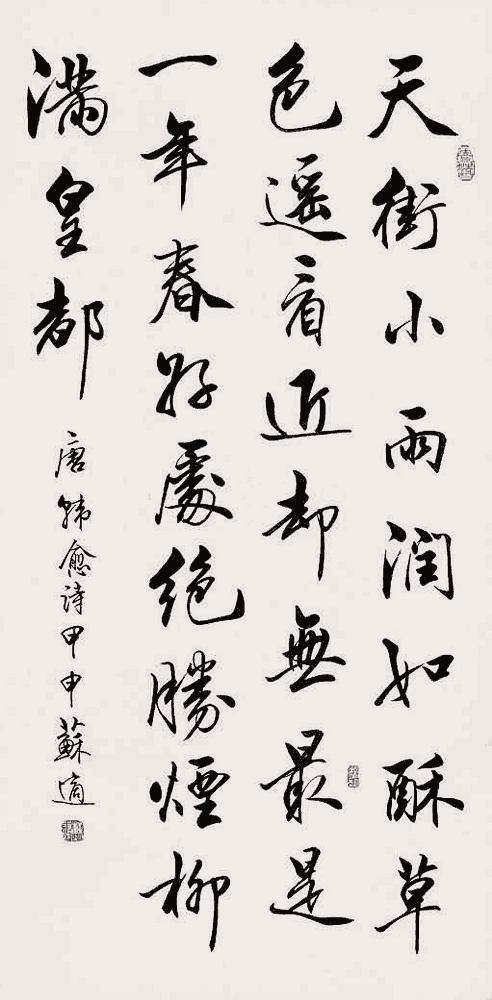 天街小雨潤如酥草
色遥看近却無最是
一年春好處絶勝煙柳
滿皇都
唐韓愈詩甲申蘇適